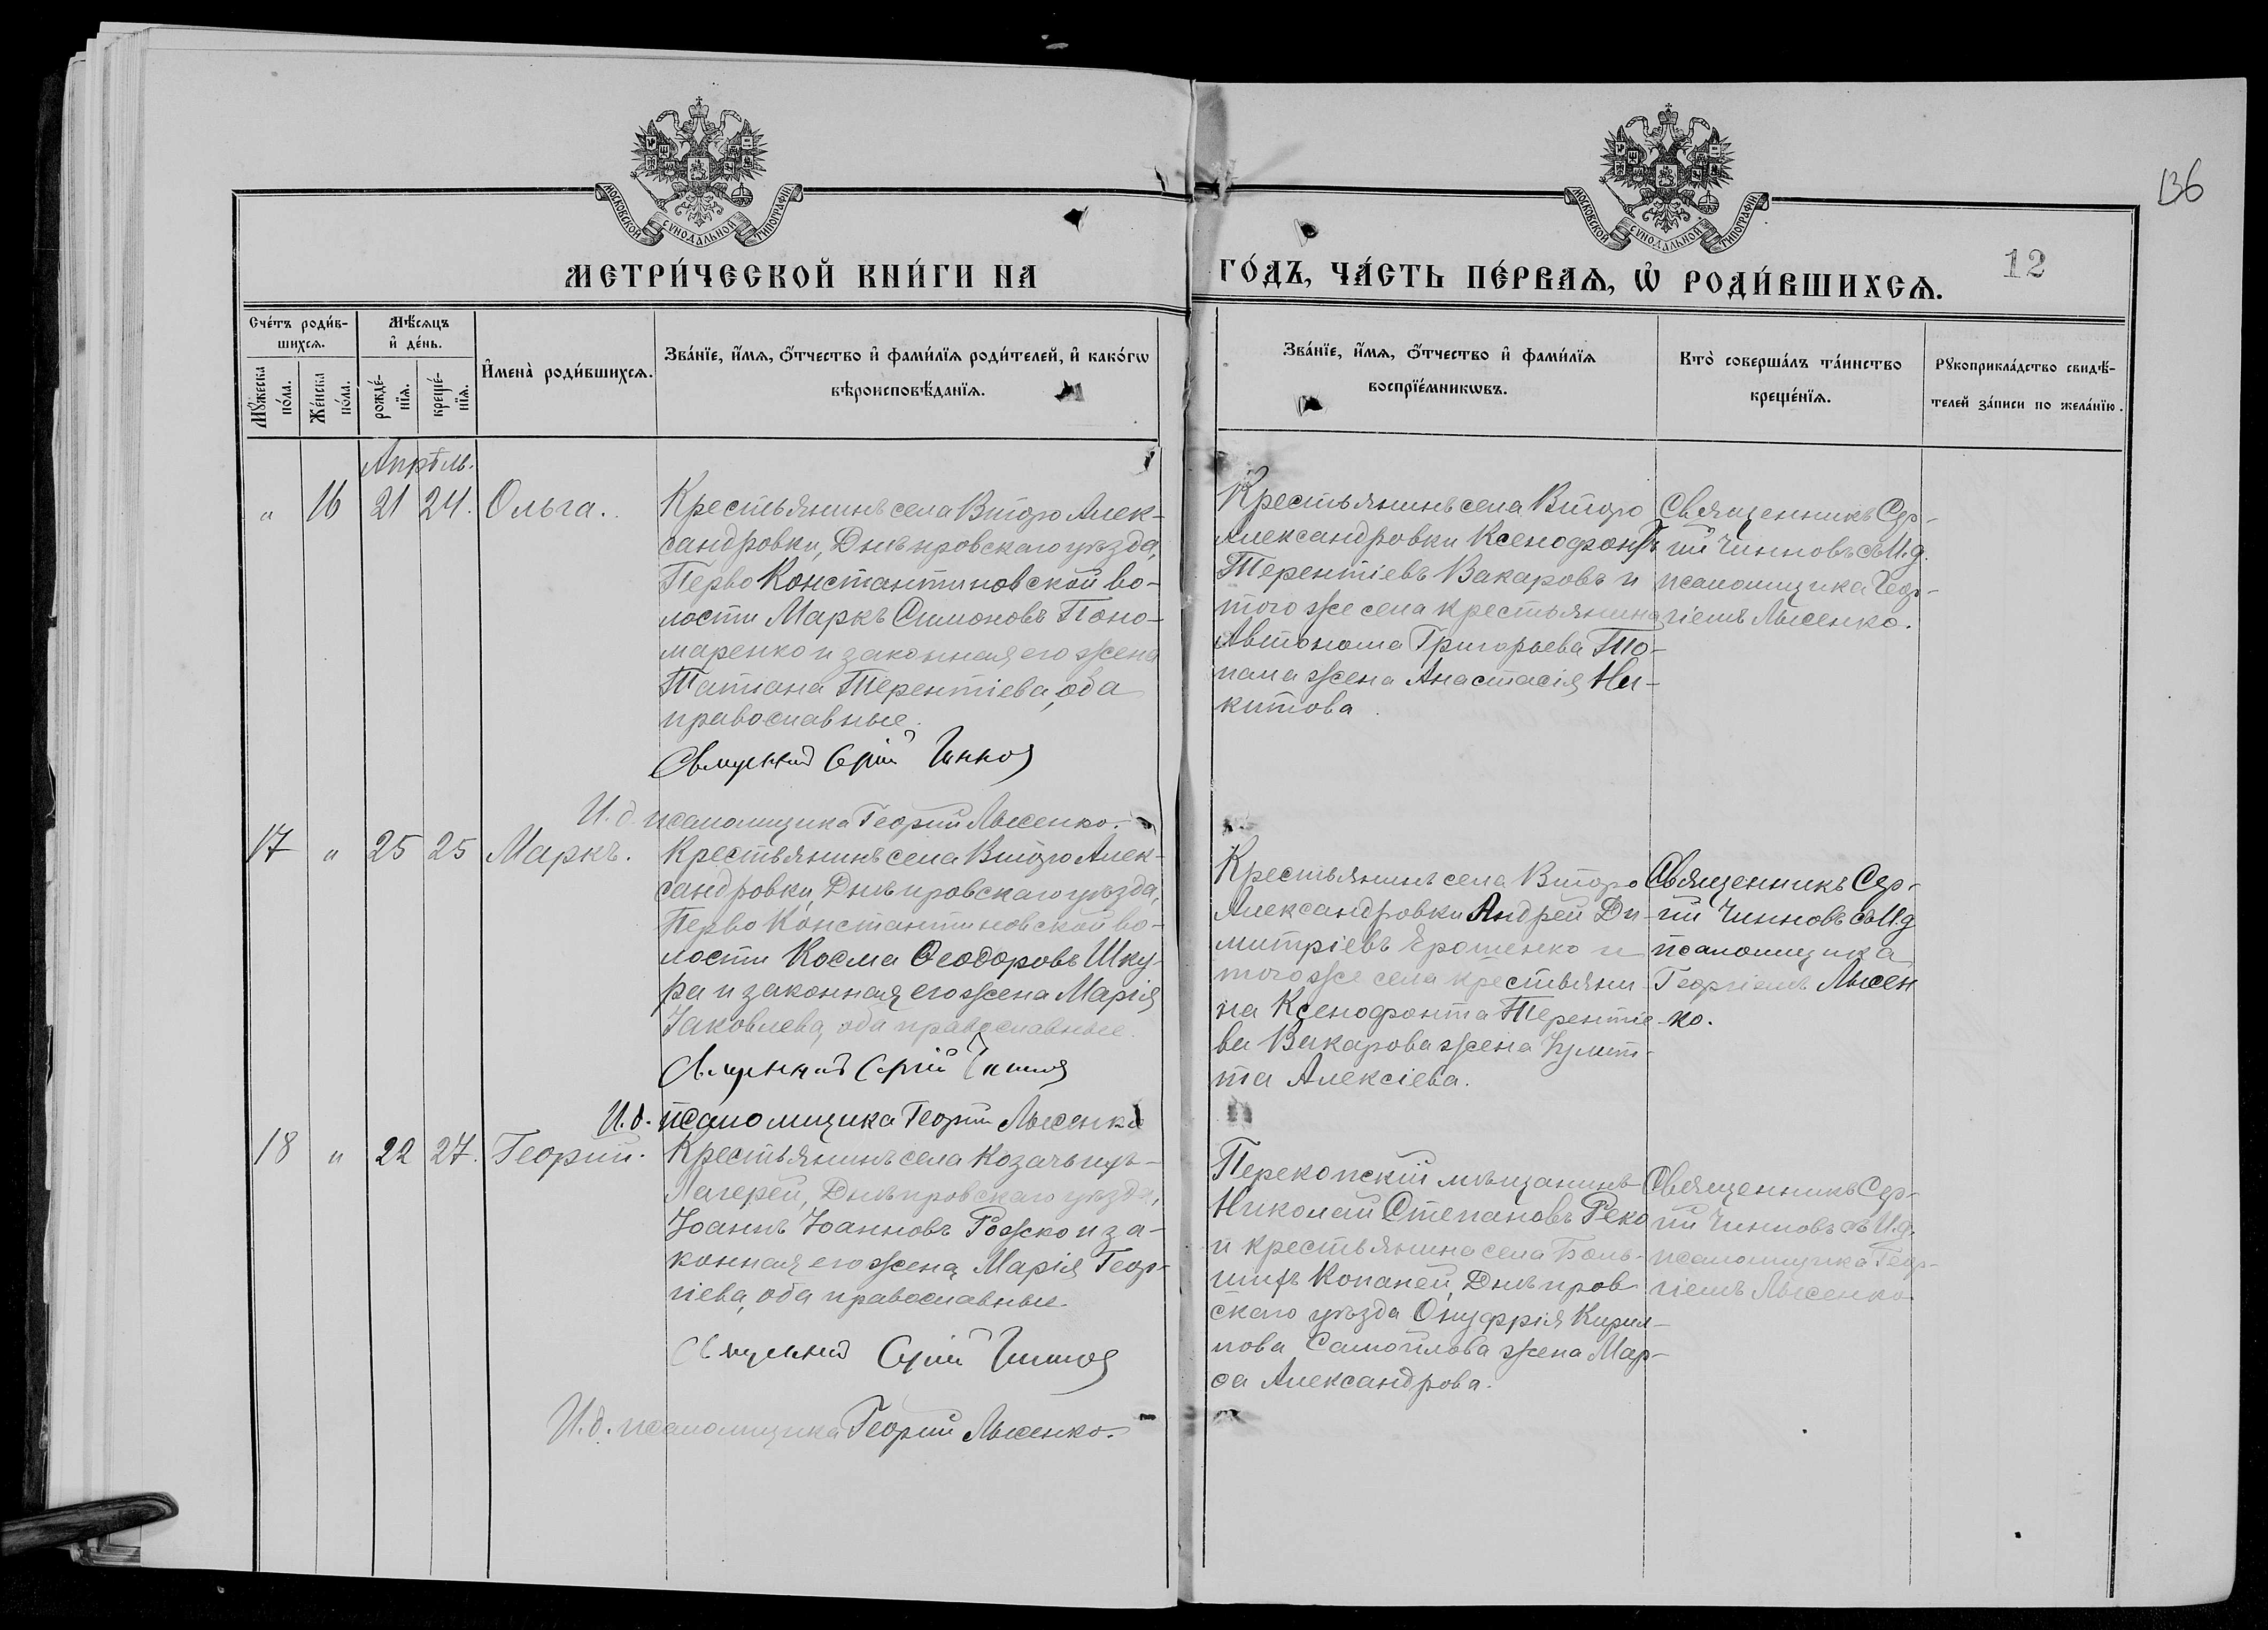 136
МОСКОВСКОЙ СУНОДАЛЬНОЙ ТИПОГРАФІИ
МОСКОВСКОЙ СУНОДАЛЬНОЙ ТИПОГРАФІИ
МЕТРИ́ЧЕСКОЙ КНИ́ГИ НА
ГО́ДЪ, ЧА́СТЬ ПЕ́РВАѦ, Ѡ҆ РОДИ́ВШИХСѦ.
12
Сче́тъ роди́в-
шихсѧ.
Мꙋ́жеска
по́ла.
Же́нска
по́ла.
Мѣ́сѧцъ
и҆ де́нь.
рожде́-
нїѧ.
креще́-
нїѧ.
И҆мена̀ роди́вшихсѧ.
Зва́нїе, и҆́мѧ, ѻ҆́тчество и҆ фами́лїѧ роди́телей, и҆ како́гѡ
вѣроисповѣ́данїѧ.
Зва́нїе, и҆́мѧ, ѻ҆́тчество и҆ фами́лїѧ
воспрїе́мникѡвъ.
Кто̀ соверша́лъ та́инство
креще́нїѧ.
Рꙋкоприкла́дство свидѣ́-
телей за́писи по жела́нїю.
Апрѣль.
" 16 21 24. Ольга.
Крестьянинъ села Второ Алек-
сандровки, Днѣпровскаго уѣзда,
Перво Константиновской во-
лости Маркъ Симоновъ Поно-
маренко и законная его жена
Татіана Терентіева, оба
православные.
Священникъ Сергій Чинновъ
И. д. псаломщика Георгій Лысенко.
Крестьянинъ села Второ
Александровки Ксенофонтъ
Терентіевъ Вакаровъ и
того же села крестьянина
Автонома Григорьева То-
пала жена Анастасія Ни-
китова.
Священникъ Сер-
гій Чинновъ съ И.д.
псаломщика Геор-
гіемъ Лысенко.
17 " 25 25 Маркъ.
Крестьянинъ села Второ Алек-
сандровки, Днѣпровскаго уѣзда,
Перво Константиновской во-
лости Косма Ѳеодоровъ Шку-
ра и законная его жена Марія
Іаковлева, оба православные.
Священникъ Сергій Чинновъ
И. д. псаломщика Георгій Лысенко
Крестьянинъ села Второ
Александровки Андрей Ди-
митріевъ Ярошенко и
того же села крестьяни-
на Ксенофонта Терентіе-
ва Вакарова жена
Алексіева.
Священникъ Сер-
гій Чинновъ съ И.д
псаломщика
Георгіемъ Лысен
-ко.
18 " 22 27. Георгій.
Крестьянинъ села Козачьихъ-
Лагерей, Днѣпровскаго уѣзда,
Іоаннъ Іоанновъ Рожко и за-
конная его жена Марія Геор-
гіева, оба православные.
Священникъ Сергій Чинновъ
И. д. псаломщика Георгій Лысенко.
Перекопскій мѣщанинъ
Николай Степановъ Реко
и крестьянина села Боль-
шихъ Копаней, Днѣпров-
скаго уѣзда Онуфрія Кирил-
лова Самойлова жена Мар-
ѳа Александрова.
Священникъ Сер-
гій Чинновъ съ И.д.
псаломщика Геор-
гіемъ Лысенко.